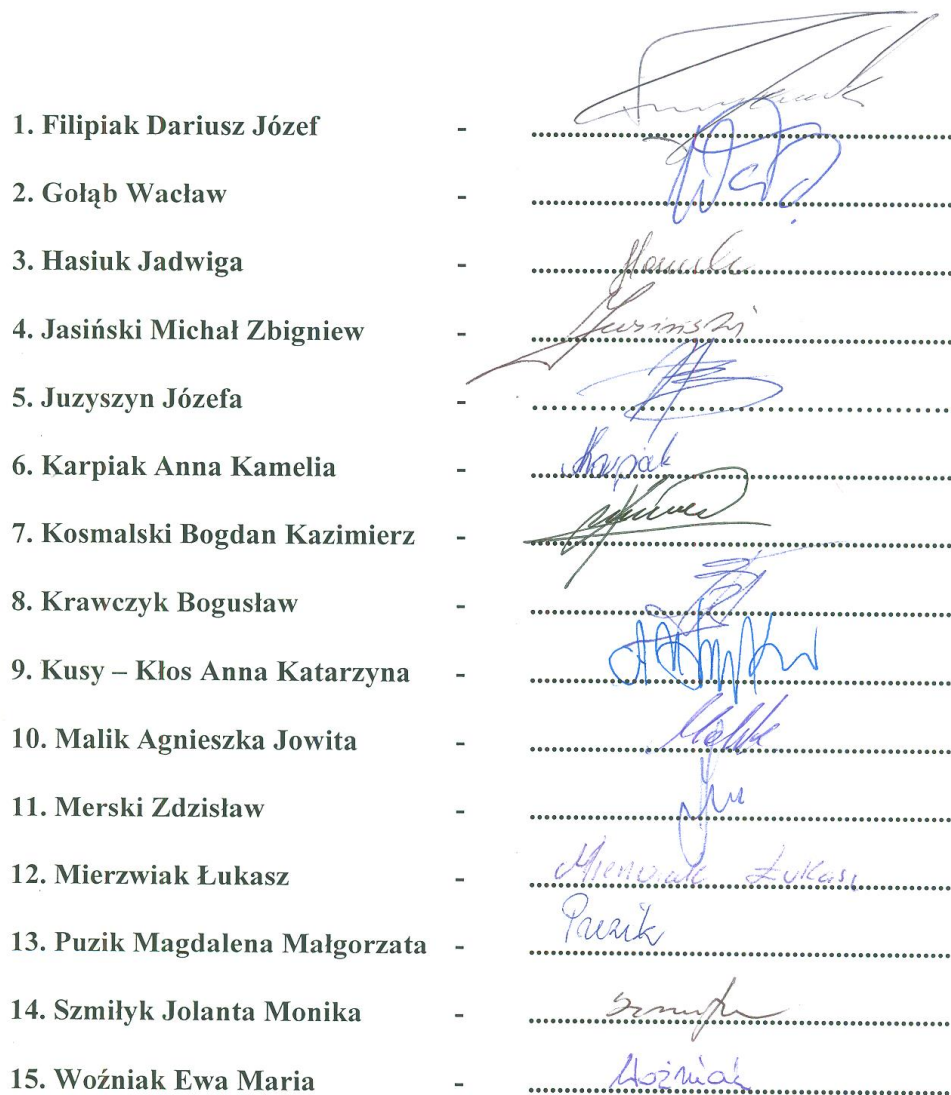 1. Filipiak Dariusz Józef -
2. Gołąb Wacław -
3. Hasiuk Jadwiga -
4. Jasiński Michał Zbigniew - Jasiński
5. Juzyszyn Józefa -
6. Karpiak Anna Kamelia - Karpiak
7. Kosmalski Bogdan Kazimierz -
8. Krawczyk Bogusław -
9. Kusy – Kłos Anna Katarzyna -
10. Malik Agnieszka Jowita - Malik
11. Merski Zdzisław -
12. Mierzwiak Łukasz - Mierzwiak Łukasz
13. Puzik Magdalena Małgorzata - Puzik
14. Szmiłyk Jolanta Monika -
15. Woźniak Ewa Maria - Woźniak